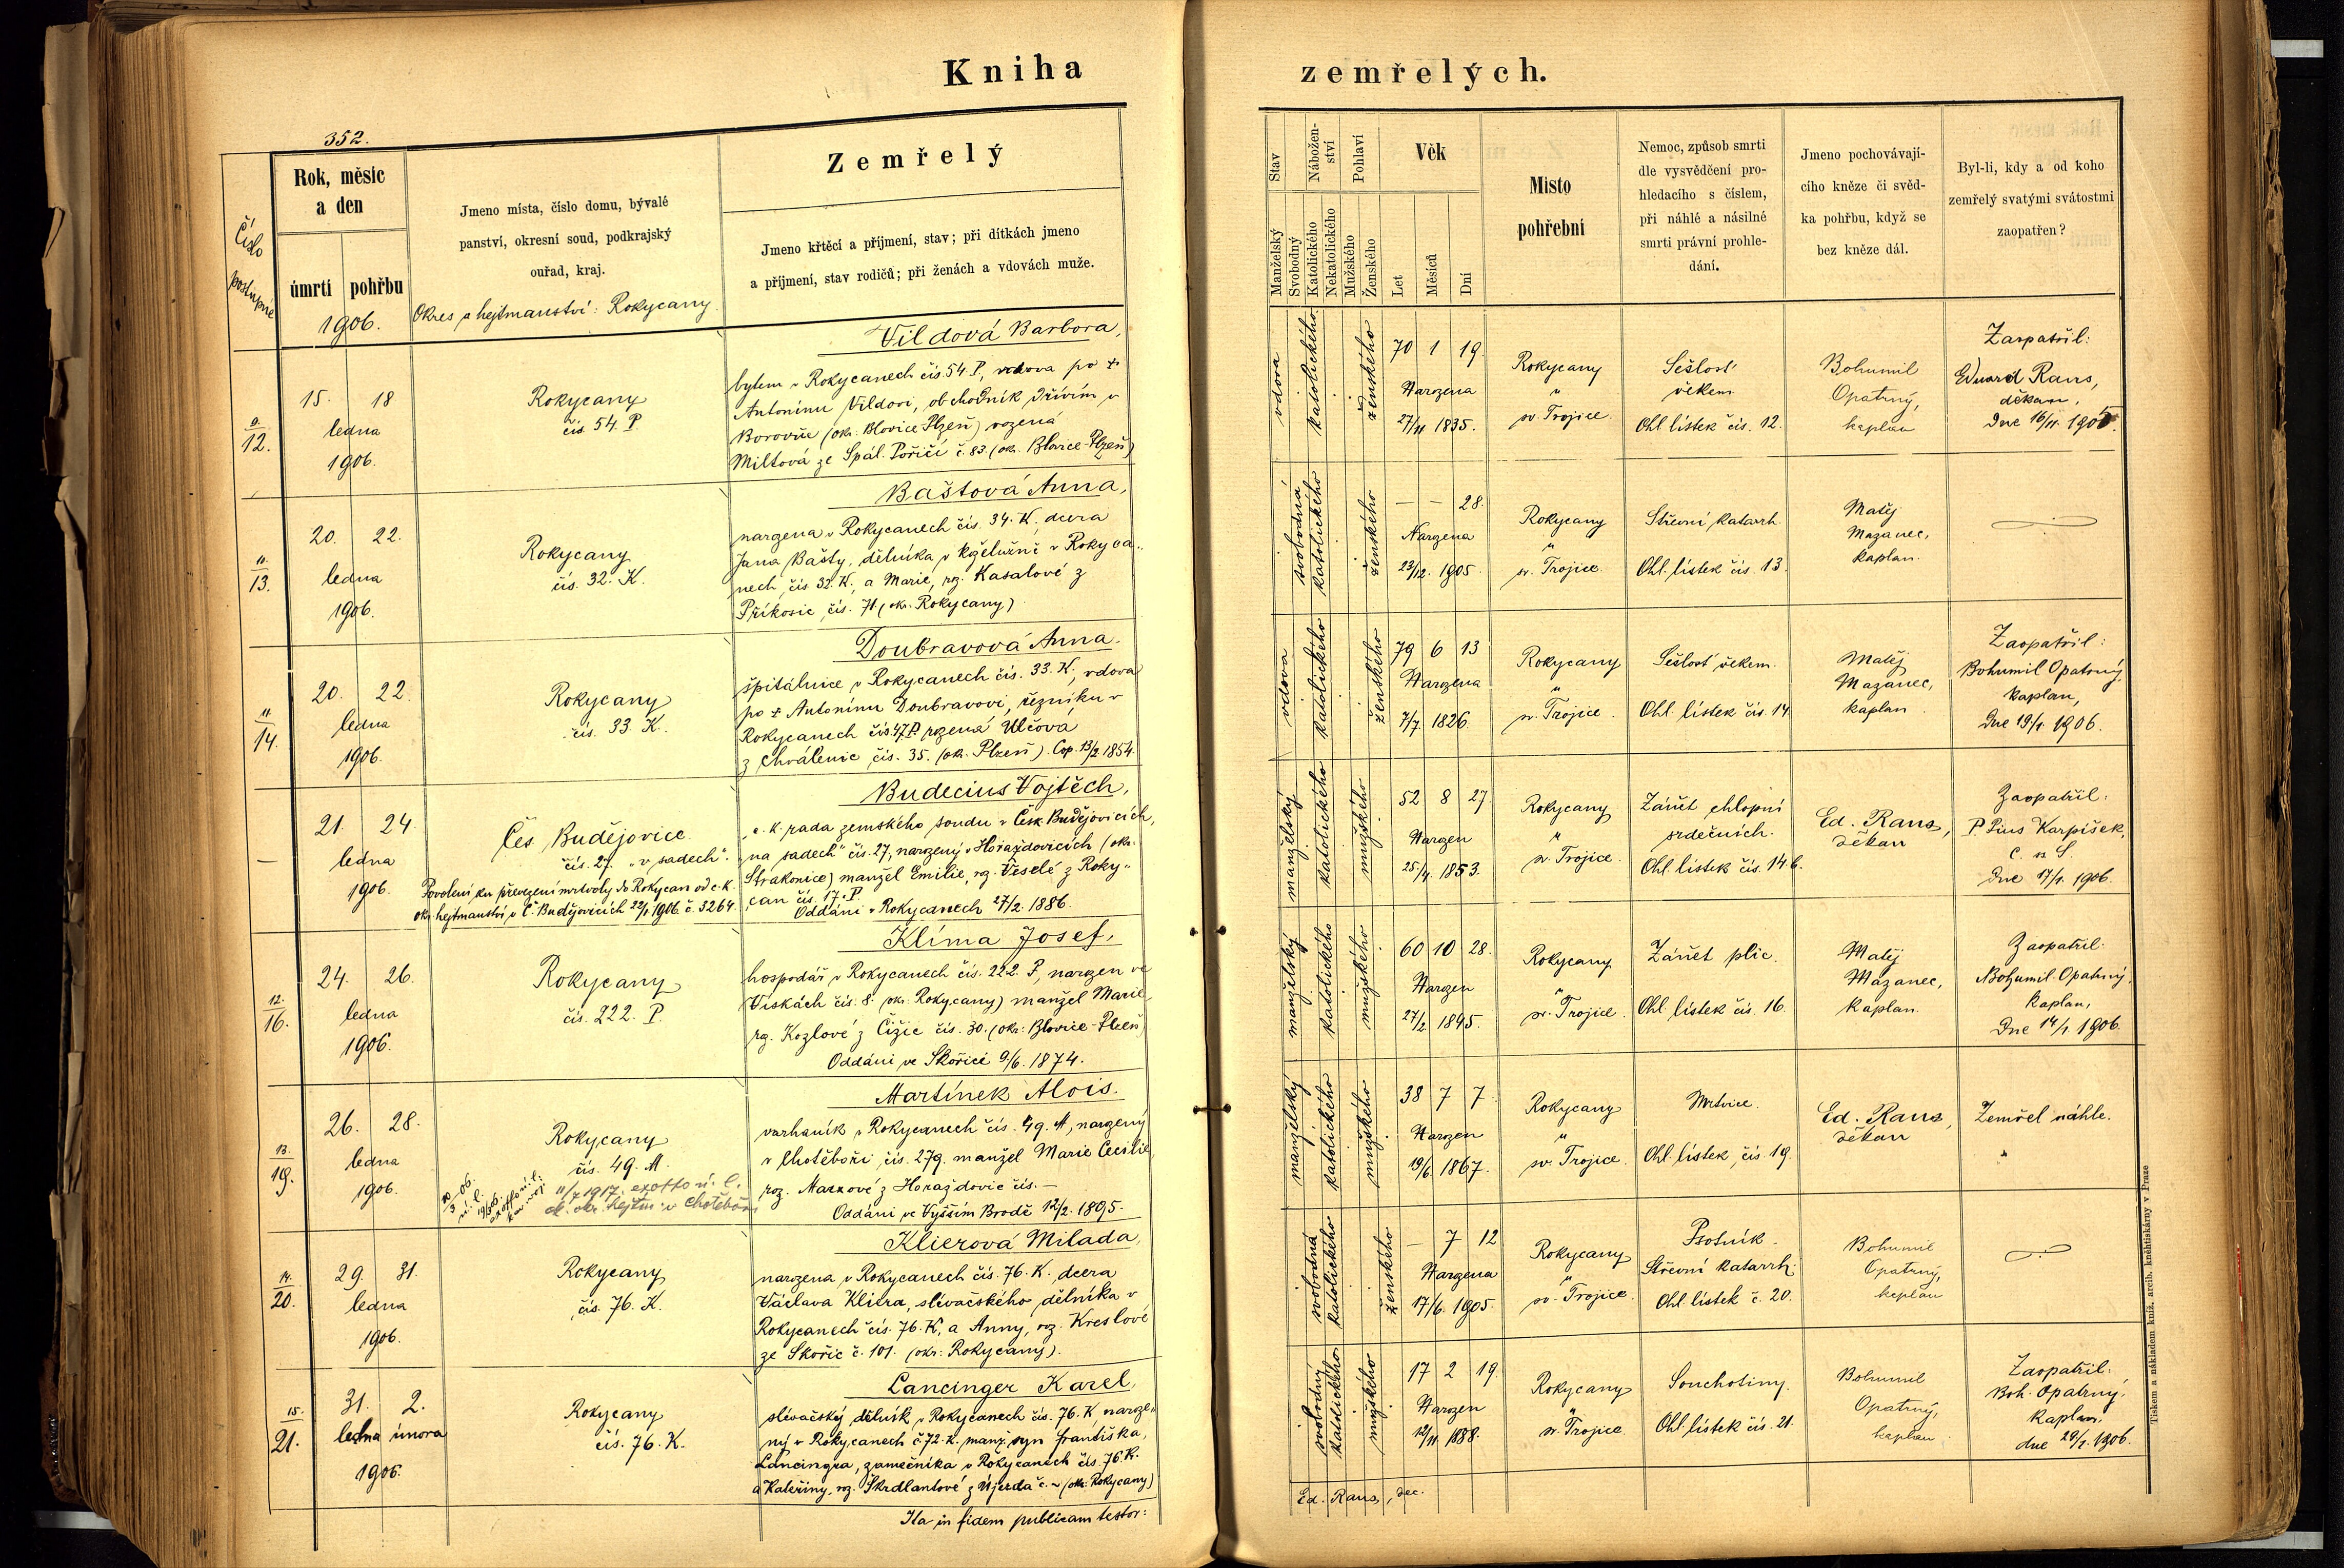 Kniha
zemřelých.
352.
Číslo
postupné
Rok, měsíc
a den
úmrtí
pohřbu
1906.
Jmeno místa, číslo domu, bývalé
panství, okresní soud, podkrajský
ouřad, kraj.
Okres a hejtmanství: Rokycany
Zemřelý
Jmeno křtěcí a příjmení, stav; při dítkách jmeno
a příjmení, stav rodičů; při ženách a vdovách muže.
Stav
Manželský
Svobodný
Nábožen-
ství
Katolického
Nekatolického
Pohlaví
Mužského
Ženského
Věk
Let
Měsíců
Dní
Místo
pohřební
Nemoc, způsob smrti
dle vysvědčení pro-
hledacího s číslem,
při náhlé a násilné
smrti právní prohle-
dání.
Jmeno pochovávají-
cího kněze či svěd-
ka pohřbu, když se
bez kněze dál.
Byl-li, kdy a od koho
zemřelý svatými svátostmi
zaopatřen?
9.
12.
15. 18
ledna
1906.
Rokycany
čís. 54. P.
Vildová Barbora,
bytem v Rokycanech čís. 54. P, vdova po +
Antonínu Vildovi, obchodník dřívím v
Borovně (okr. Blovice Plzeň) rozená
Miltová ze Spál. Poříčí č. 83. (okr. Blovice-Plzeň)
vdova
katolického
ženského
70 1 19.
Narozena
27/11 1835.
Rokycany
u
sv. Trojice.
Sešlosť
věkem
Ohl. lístek čís. 12.
Bohumil
Opatrný,
kaplan
Zaopatřil:
Eduard Rans,
děkan,
Dne 16/11. 1905.
11.
13.
20. 22.
ledna
1906.
Rokycany
čís. 32. K.
Baštová Anna,
narozena v Rokycanech čís. 34. K, dcera
Jana Bašty, dělníka v koželužně v Rokyca-
nech, čís 32. K, a Marie, roz. Kasalové z
Příkosic, čís. 71 (okr. Rokycany)
svobodná
katolického
ženského
— — 28.
Narozena
23/12. 1905.
Rokycany
u
sv. Trojice.
Střevní katarrh.
Ohl. lístek čís. 13.
Matěj
Mazanec,
kaplan.
11.
14.
20. 22.
ledna
1906.
Rokycany
čís. 33. K.
Doubravová Anna.
špitálnice v Rokycanech čís. 33. K, vdova
po + Antonínu Doubravovi, řezníku v
Rokycanech čís. 47. P rozená Ulčova
z Chválenic, čís. 35. (okr. Plzeň). Cop. 13/2. 1854.
vdova
katolického
ženského
79 6 13
Narozena
7/7. 1826.
Rokycany
u
sv. Trojice.
Sešlosť věkem.
Ohl. lístek čís. 14
Matěj
Mazanec,
kaplan
Zaopatřil:
Bohumil Opatrný,
kaplan,
Dne 19/1. 1906.
—
21. 24.
ledna
1906.
Čes. Budějovice
čís. 27. "v sadech".
Povolení ku převezení mrtvoly do Rokycan od c. k.
okr. hejtmanství v Č. Budějovicích 22/1 1906. č. 3264.
Budecius Vojtěch,
c. k. rada zemského soudu v Česk. Budějovicích,
"na sadech" čís. 27, narozený v Horažďovicích (okr.
Strakonice) manžel Emilie, roz. Veselé z Roky-
can čís. 17. P.
Oddáni v Rokycanech 27/2. 1886.
manželský
katolického
mužského
52 8 27.
Narozen
25/4. 1853.
Rokycany
u
sv. Trojice.
Zánět chlopní
srdečních.
Ohl. lístek čís. 14 b.
Ed. Rans,
děkan
Zaopatřil:
P. Pius Karpíšek,
C. ss. S.
Dne 17/1. 1906.
12.
16.
24. 26.
ledna
1906.
Rokycany
čís. 222. P.
Klíma Josef,
hospodář v Rokycanech čís. 222. P, narozen ve
Vískách čís. 8. (okr. Rokycany) manžel Marie
roz. Kozlové z Čižic čís. 30. (okr. Blovice-Plzeň)
Oddáni ve Skořici 9/6. 1874.
manželský
katolického
mužského
60 10 28.
Narozen
27/2. 1845.
Rokycany
u
sv. Trojice.
Zánět plic.
Ohl. lístek čís. 16.
Matěj
Mazanec,
kaplan.
Zaopatřil:
Bohumil Opatrný,
kaplan,
Dne 14/1. 1906.
13.
19.
26. 28.
ledna
1906.
Rokycany
čís. 49. M.
11/7 1917. exoffo ú. l.
ok. okr. hejtm. v Chotěboři
Martínek Alois.
varhaník v Rokycanech čís. 49. M, narozený
v Chotěboři, čís. 279. manžel Marie Cecilie,
roz. Markové z Horažďovic čís. —
Oddáni ve Vyšším Brodě 12/2. 1895.
manželský
katolického
mužského
38 7 7.
Narozen
19/6. 1867.
Rokycany
u
sv. Trojice.
Mrtvice.
Ohl. lístek, čís. 19.
Ed. Rans,
děkan
Zemřel náhle.
14.
20.
29. 31.
ledna
1906.
Rokycany
čís. 76. K.
Klierová Milada,
narozena v Rokycanech čís. 76. K. dcera
Václava Kliera, slévačského dělníka v
Rokycanech čís. 76. K, a Anny, roz. Kreslové
ze Skořic č. 101. (okr. Rokycany).
svobodná
katolického
ženského
— 7 12
Narozena
17/6. 1905.
Rokycany
u
sv. Trojice.
Psotník.
Střevní katarrh.
Ohl. lístek č. 20.
Bohumil
Opatrný,
kaplan
15.
21.
31. 2.
ledna února
1906.
Rokycany
čís. 76. K.
Lancinger Karel,
slévačský dělník v Rokycanech čís. 76. K naroze-
ný v Rokycanech č. 72. K. manž. syn Františka,
Lancingra, zámečníka v Rokycanech čís. 76. K.
a Kateřiny, roz. Škrdlantové z Újezda č. — (okr. Rokycany)
svobodný
katolického
mužského
17 2 19.
Narozen
12/11. 1888.
Rokycany
u
sv. Trojice
Souchotiny.
Ohl. lístek čís. 21.
Bohumil
Opatrný,
kaplan
Zaopatřil:
Boh. Opatrný,
kaplan.
dne 29/1. 1906.
Ita in fidem publicam testor:
Ed. Rans, dec.
Tiskem a nákladem kníž. arcib. knihtiskárny v Praze